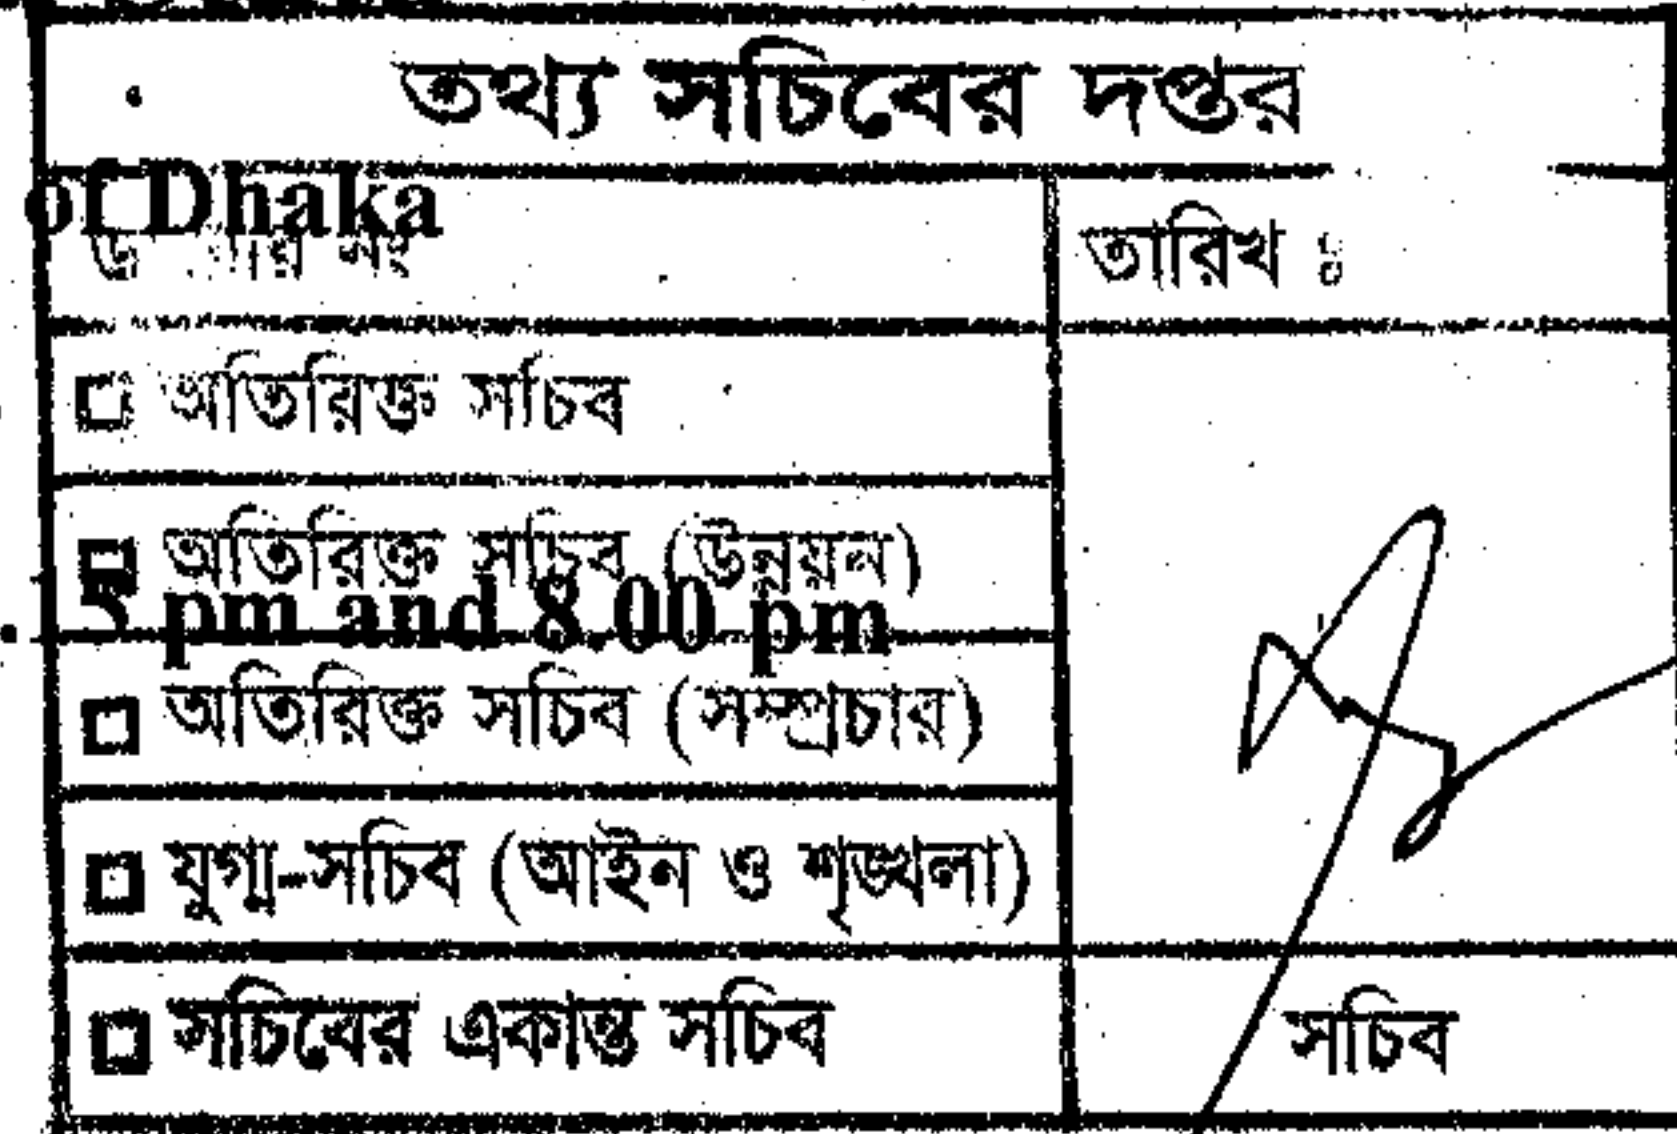 তথ্য সচিবের দপ্তর
of Dhaka
নং
তারিখ ঃ
□ অতিরিক্ত সচিব
□ অতিরিক্ত সচিব (উন্নয়ন)
5 pm and 8.00 pm
□ অতিরিক্ত সচিব (সম্প্রচার)
□ যুগ্ম-সচিব (আইন ও শৃঙ্খলা)
□ সচিবের একান্ত সচিব
সচিব